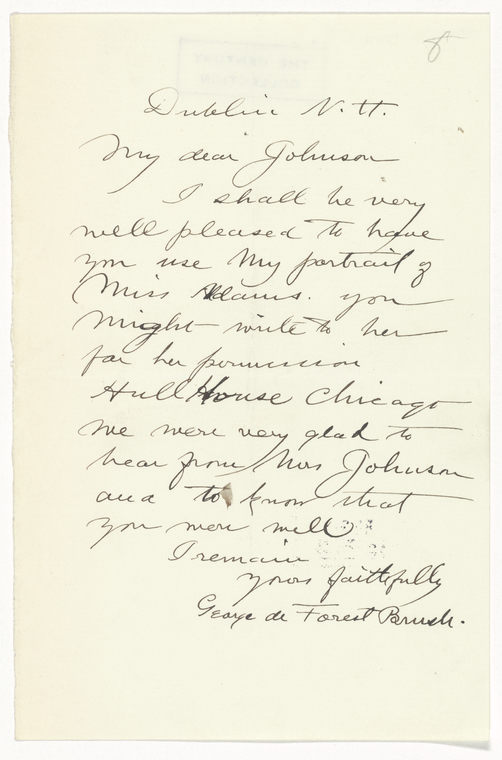 8
Dublin N.H.
My dear Johnson
I shall be very
well pleased to have
you use my portrait of
Miss Adams. you
might write to her
for her permission
Hull House Chicago
we were very glad to
hear from Mrs Johnson
and to know that
you were well
I remain
yours faithfully
George de Forest Brush.